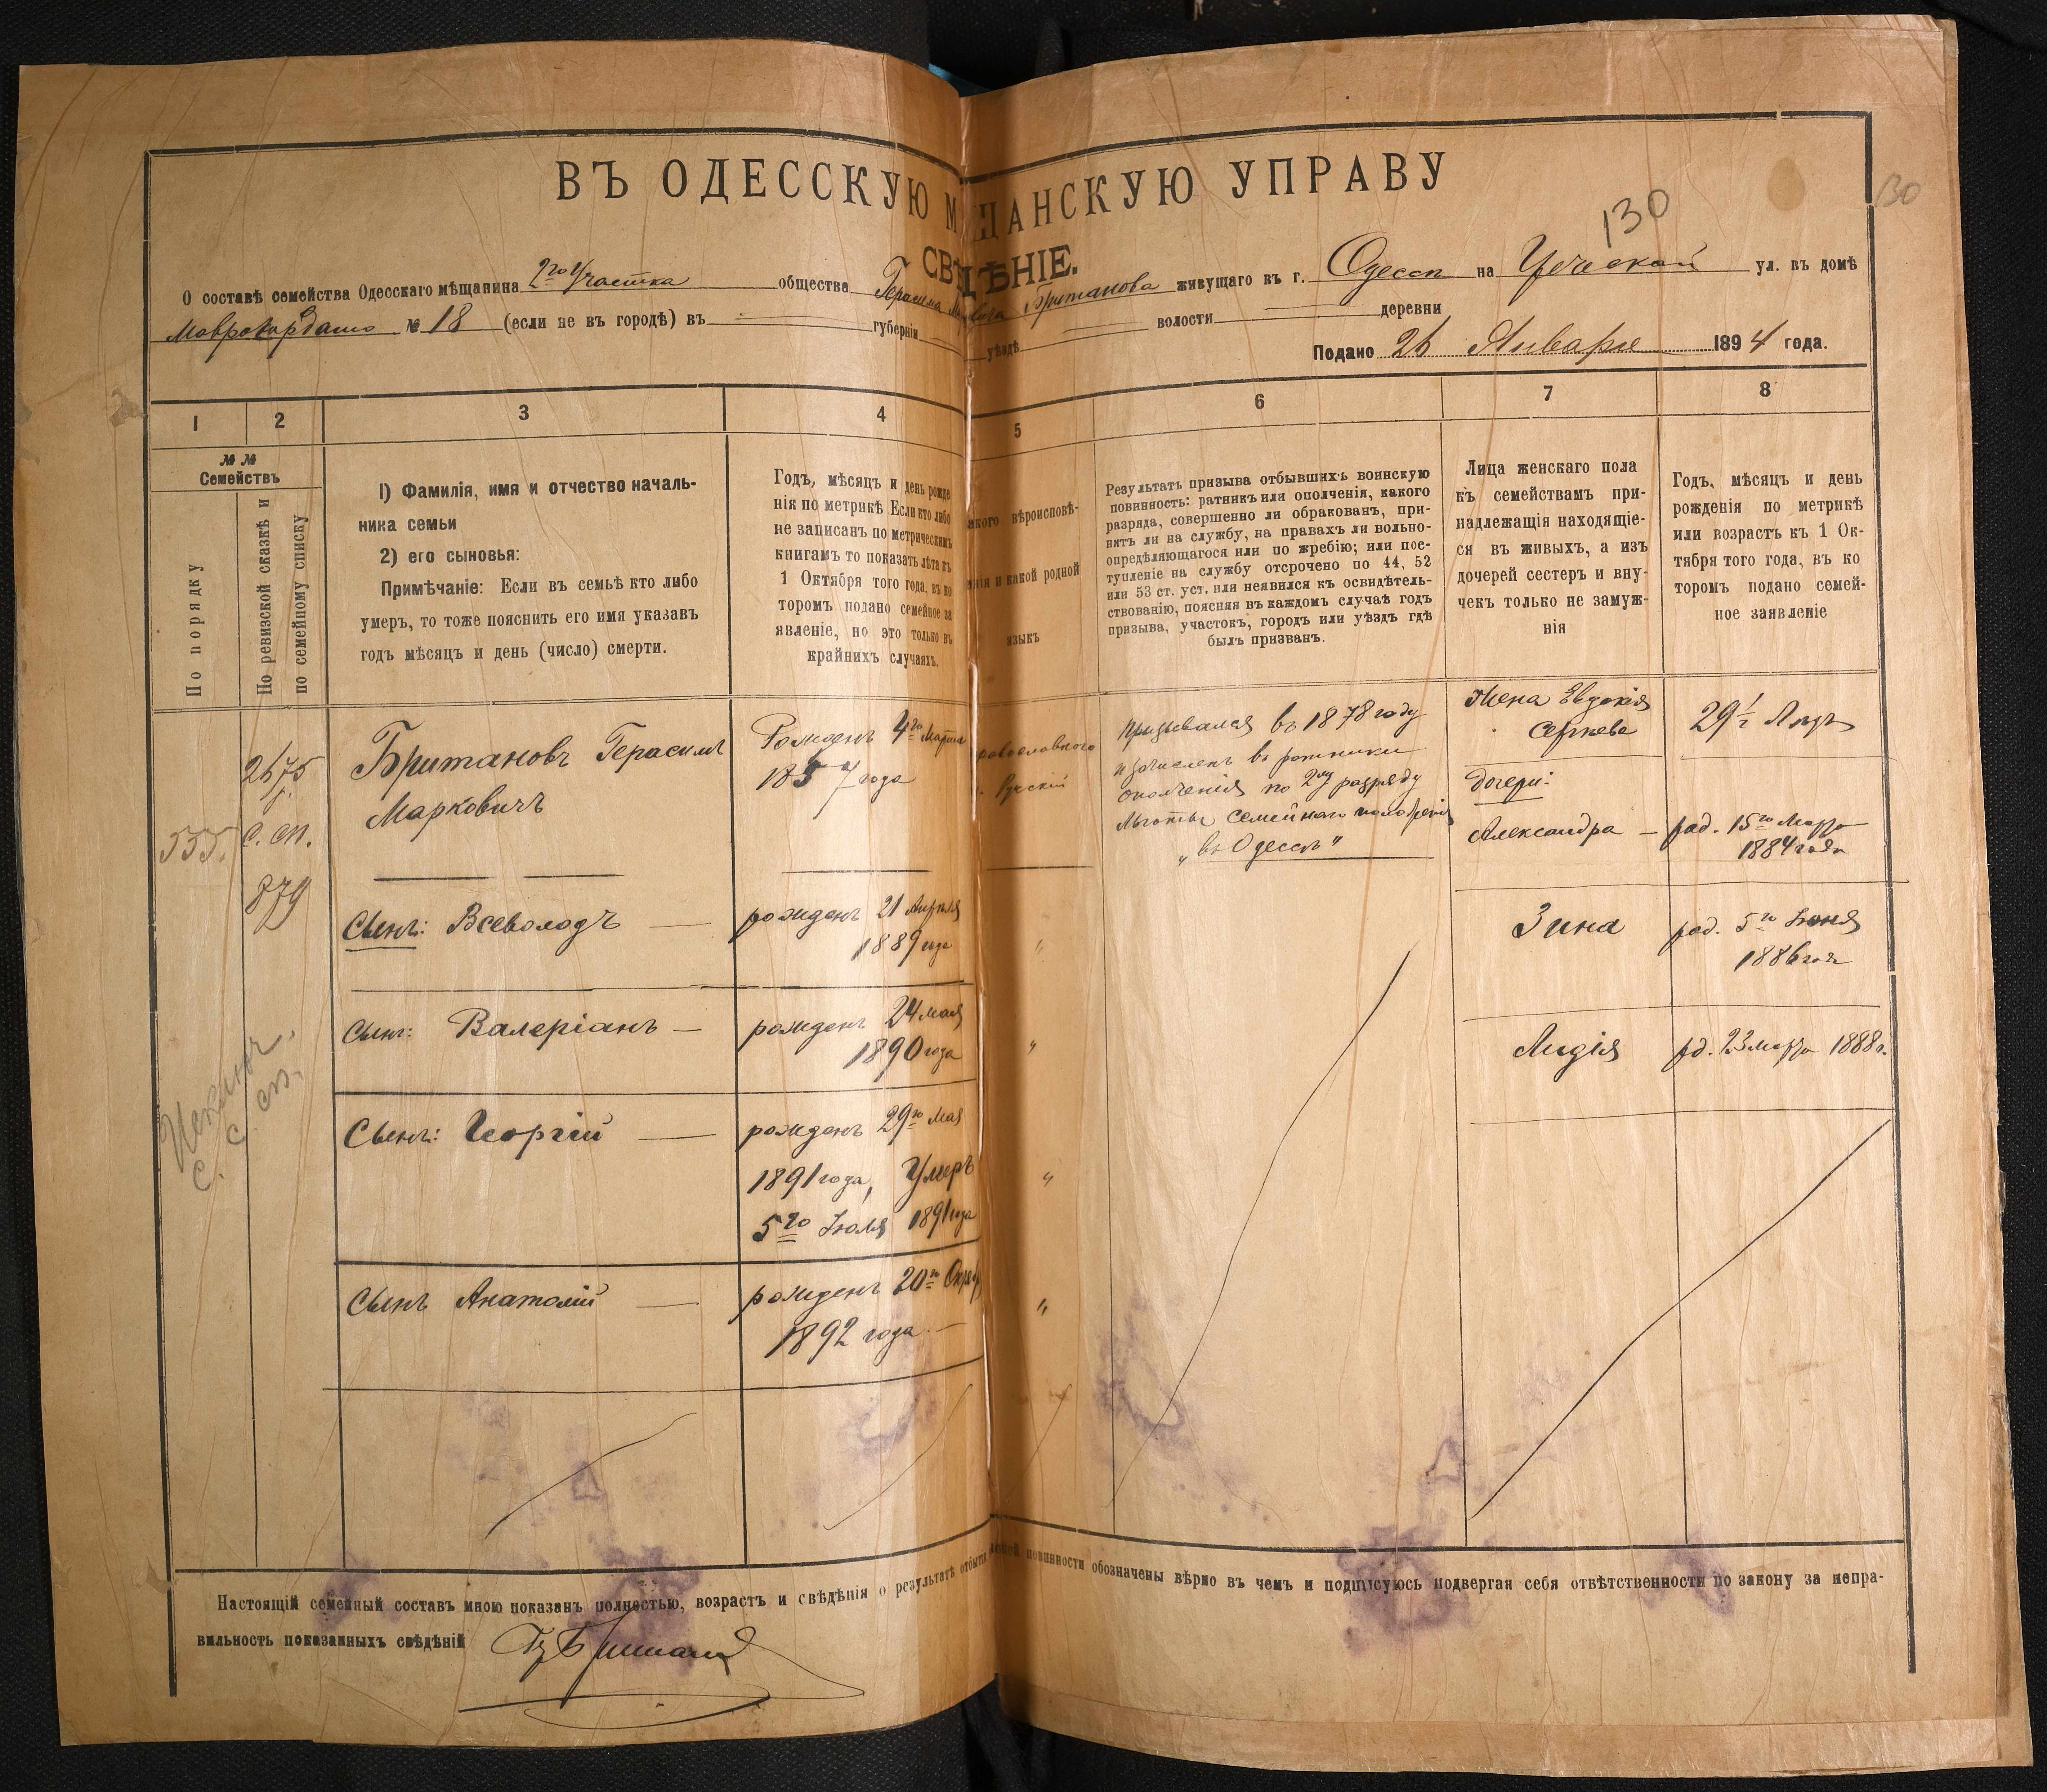 ВЪ ОДЕССКУЮ МѢЩАНСКУЮ УПРАВУ
130
130
СВѢДѢНІЕ.
О составѣ семейства Одесскаго мѣщанина 2го Участка общества Герасима Британова живущаго въ г. Одессѣ на ул. въ домѣ
Маврокордато № 18 (если не въ городѣ) въ губерніи уѣздѣ волости деревни
Подано 26 Января 1894 года.
1 2 3 4 5 6 7 8
№№
Семействъ
По порядку
По ревизской сказкѣ и
по семейному списку
1) Фамилія, имя и отчество началь-
ника семьи
2) его сыновья:
Примѣчаніе: Если въ семьѣ кто либо
умеръ, то тоже пояснить его имя указавъ
годъ мѣсяцъ и день (число) смерти.
Годъ, мѣсяцъ и день рожде
нія по метрикѣ Если кто либо
не записанъ по метрическимъ
книгамъ то показать лѣта къ
1 Октября того года, въ ко
торомъ подано семейное за
явленіе, но это только въ
крайнихъ случаяхъ.
акого вѣроисповѣ-
анія и какой родной
языкъ
Результатъ призыва отбывшихъ воинскую
повинность: ратникъ или ополченія, какого
разряда, совершенно ли обракованъ, при-
нятъ ли на службу, на правахъ ли вольно-
опредѣляющагося или по жребію; или пос-
тупленіе на службу отсрочено по 44, 52
или 53 ст. уст. или неявился къ освидѣтель-
ствованію, поясняя въ каждомъ случаѣ годъ
призыва, участокъ, городъ или уѣздъ гдѣ
былъ призванъ.
Лица женскаго пола
къ семействамъ при-
надлежащія находящіе-
ся въ живыхъ, а изъ
дочерей сестеръ и вну-
чекъ только не замуж-
нія
Годъ, мѣсяцъ и день
рожденія по метрикѣ
или возрастъ къ 1 Ок-
тября того года, въ ко
торомъ подано семей-
ное заявленіе
535.
2675
с. сп.
879
Исключ.
с. с. сп.
Британовъ Герасимъ
Марковичъ
Рожденъ 4го Марта
1857 года
равославного
Рускій
Призывался въ 1878 году
и зачисленъ въ ратники
ополченія по 2му разряду
льготы семейнаго положенія
„въ Одессѣ"
Жена Евдокія
Сергѣева
29½ Лѣтъ
дочери:
Александра — род. 15го Марта
1884 года
Сынъ: Всеволодъ — рожденъ 21 Апрѣля
1889 года
"
Зина род. 5го Іюня
1886 года
Сынъ: Валеріанъ — рожденъ 24 мая
1890 года
"
Лидія рд. 23 марта 1888 г.
Сынъ: Георгій — рожденъ 29го Мая
1891 года, Умеръ
5го Іюля 1891 года
"
Сынъ Анатолій — рожденъ 20го
1892 года —
"
Настоящій семейный составъ мною показанъ полностью, возрастъ и свѣдѣнія о результатѣ отбытія воинской повинности обозначены вѣрно въ чемъ и подписуюсь подвергая себя отвѣтственности по закону за непра-
вильность показанныхъ свѣдѣній